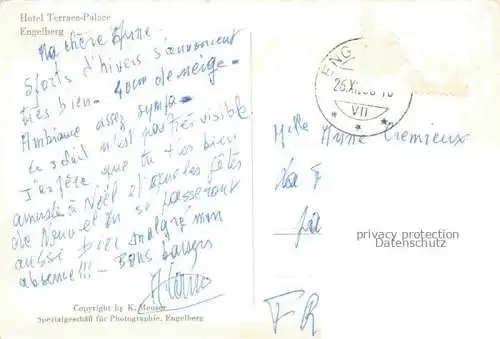 Hotel Terrace-Palace
Engelberg
Ma chère Anne.
Sports d'hivers s'annoncent
très bien - 40cm de neige -
Ambiance assez sympa -
Le soleil n'est pas très visible.
J'espère que tu t'es bien
amusée à Noël et que les fêtes
de Nouvel An se passeront
aussi bien malgré mon
absence!!! - Bons baisers
Copyright by K. Meuser
Spezialgeschäft für Photographie, Engelberg
ENG
26.XII
VII
Melle Anne Cremieux
privacy protection
Datenschutz
FR